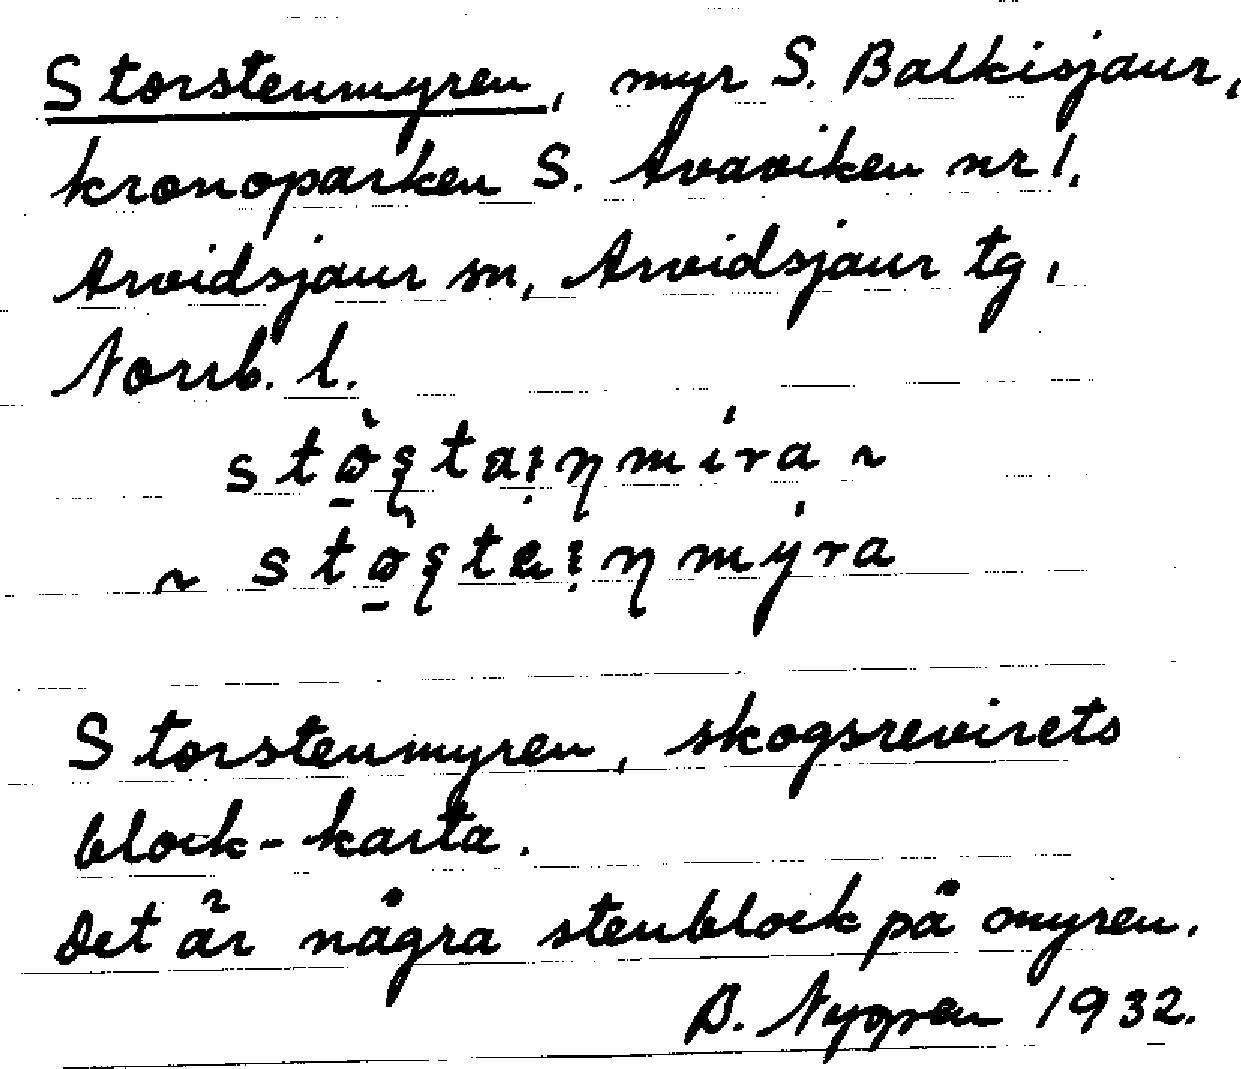 Storstenmyren, myr S. Balkisjaur,
kronoparken S. Avaviken nr 1.
Arvidsjaur sn, Arvidsjaur tg,
Norrb. l.
Storstenmyren, skogsrevirets
block-karta.
Det är några stenblock på myren.
B. Nygren 1932.